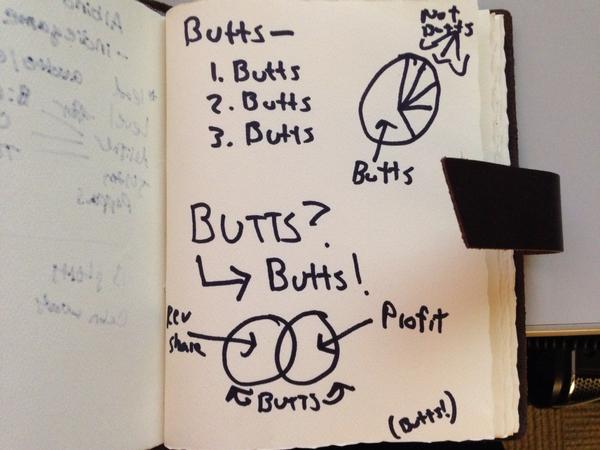 Butts—
1. Butts
2. Butts
3. Butts
Not
Butts
Butts
BUTTS?
Butts!
Rev
share
Profit
BUTTS
(Butts!)